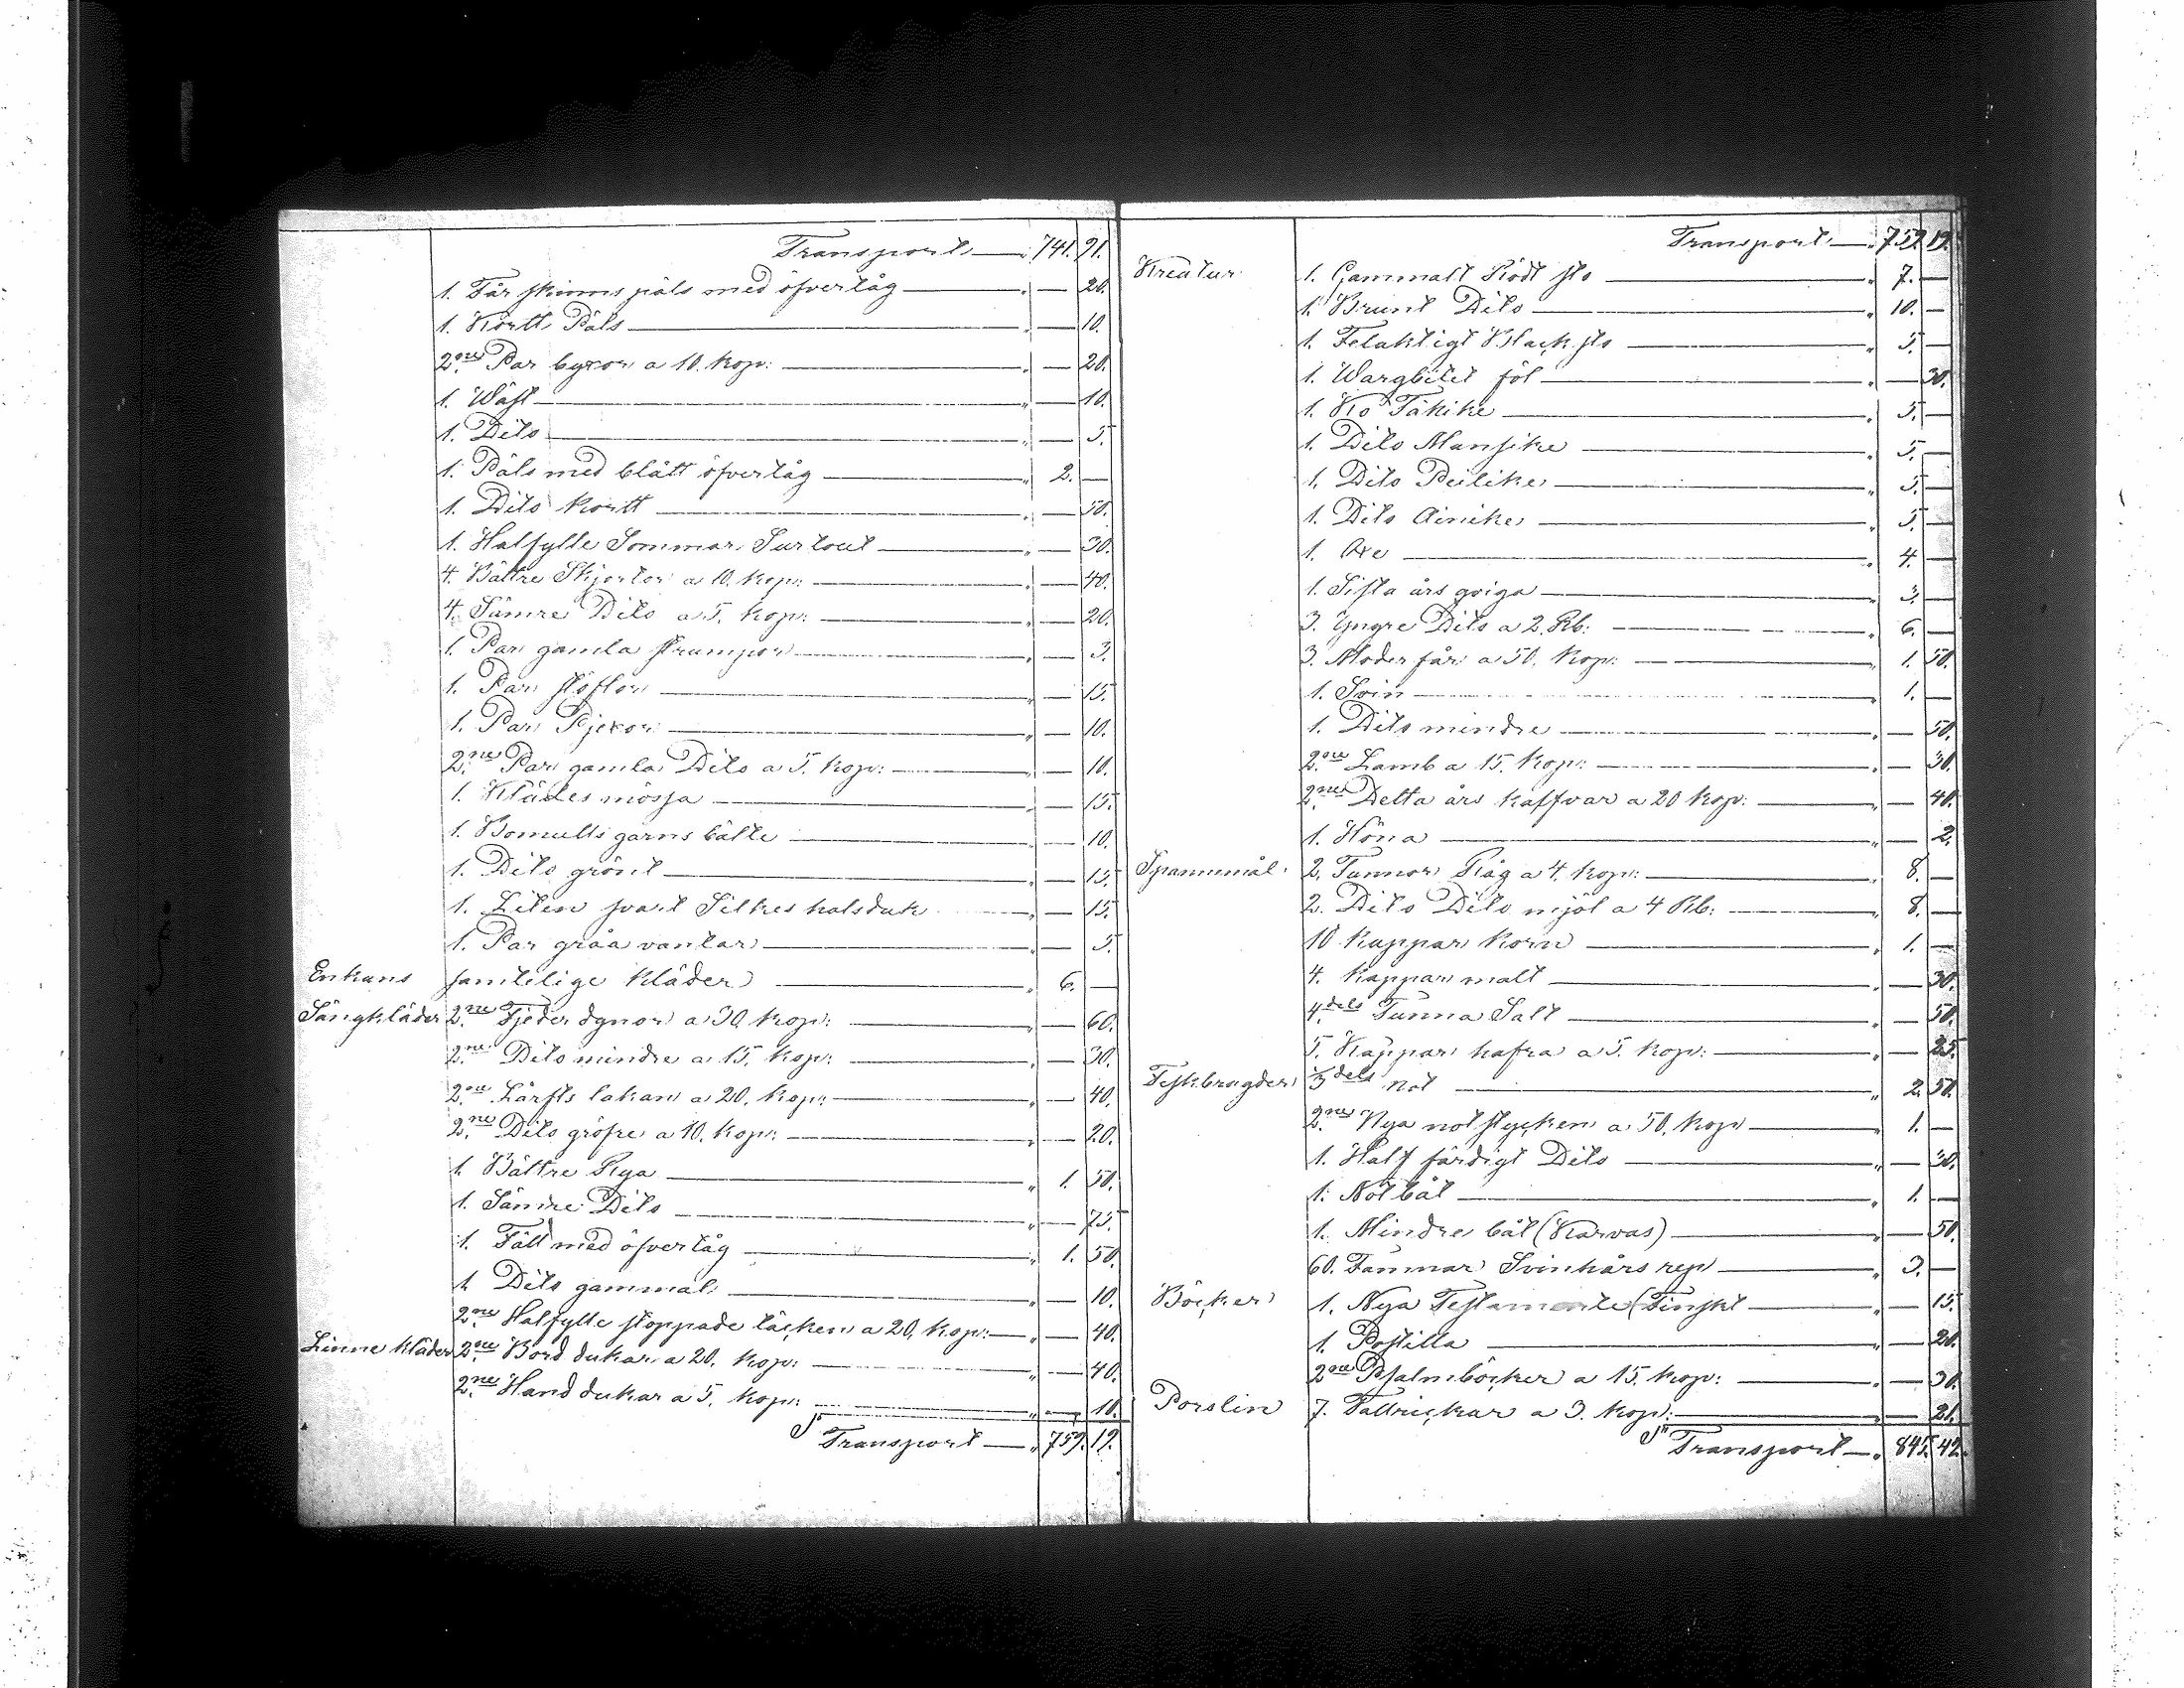 Transport — „ 741. 91.
1. Får skinns päls med öfvertåg — „ — 20.
1. Kortt Päls — „ — 10.
2.ne Par byxor a 10. Kop: — „ — 20.
1. Wäst — „ — 10.
1. Dito — „ — 5.
1. Päls med blått öfvertåg — „ 2. —
1. Dito Kortt — „ — 50.
1. Halfylle Sommar Surtout — „ — 30.
4. Bättre Skjortor a 10. Kop: — „ — 40.
4. Sämre Dito a 5. Kop: — „ — 20.
1. Par gamla strumpor — „ — 3.
1. Par stöflor — „ — 15.
1. Par Pjexor — „ — 10.
2.ne Par gamla Dito a 5. Kop: — „ — 10.
1. Klädes mössa — „ — 15.
1. Bomulls garns bälte — „ — 10.
1. Dito grönt — „ — 15.
1. Liten svart Silkes halsduk — „ — 15.
1. Par gråa vantar — „ — 5.
Enkans samtelige Kläder — „ 6. —
Sängkläder 2.ne Fjeder dynor a 30. Kop: — „ — 60.
2.ne Dito mindre a 15. Kop: — „ — 30.
2.ne Lärfts lakan a 20. Kop: — „ — 40.
2.ne Dito gröfre a 10. Kop: — „ — 20.
1. Bättre Rya — „ 1. 50.
1. Sämre Dito — „ — 75.
1. Fäll med öfvertåg — „ 1. 50.
1. Dito gammal — „ — 10.
2.ne Halfylle stoppade täcken a 20. Kop: — „ — 40.
Linne kläder 2.ne Bord dukar a 20. Kop: — „ — 40.
2.ne Hand dukar a 5. Kop: — „ — 10.
Transport — „ 759. 19.
Transport — „ 759. 19.
Kreatur 1. Gammalt Rödt sto — „ 7. —
1. Brunt Dito — „ 10. —
1. Felaktigt Black sto — „ 5. —
1. Wargbitet föl — „ — 30.
1. Ko Täkike — „ 5. —
1. Dito Mansike — „ 5. —
1. Dito Peilike — „ 5. —
1. Dito Ainike — „ 5. —
1. Oxe — „ 4. —
1. Sista års qviga — „ 3. —
3. Yngre Dito a 2. Rb: — „ 6. —
3. Moder får a 50. Kop: — „ 1. 50.
1. Svin — „ 1. —
1. Dito mindre — „ — 50.
2.ne Lamb a 15. Kop: — „ — 30.
2.ne Detta års kalfvar a 20 Kop: — „ — 40.
1. Höna — „ — 2.
Spannemål 2. Tunnor Råg a 4. Kop: — „ 8. —
2. Dito Dito mjöl a 4 Rb: — „ 8. —
10 Kappar Korn — „ 1. —
4. Kappar malt — „ — 30.
4.dels Tunna Salt — „ — 50.
5. Kappar hafra a 5. Kop: — „ — 25.
Fiskbragder 1/3dels not — „ 2. 50.
2.ne Nya not stycken a 50. Kop — „ 1. —
1. Half färdigt Dito — „ — 30.
1. Not båt — „ 1. —
1. Mindre båt (Karvas) — „ — 50.
60. Famnar Svinhårs rep — „ 3. —
Böcker 1. Nya Testamente (Finskt — „ — 15.
1. Postilla — „ — 20.
2.ne Psalmböcker a 15. Kop: — „ — 30.
Porslin 7. Tallrickar a 3. Kop: — „ — 21.
Transport — „ 845. 42.